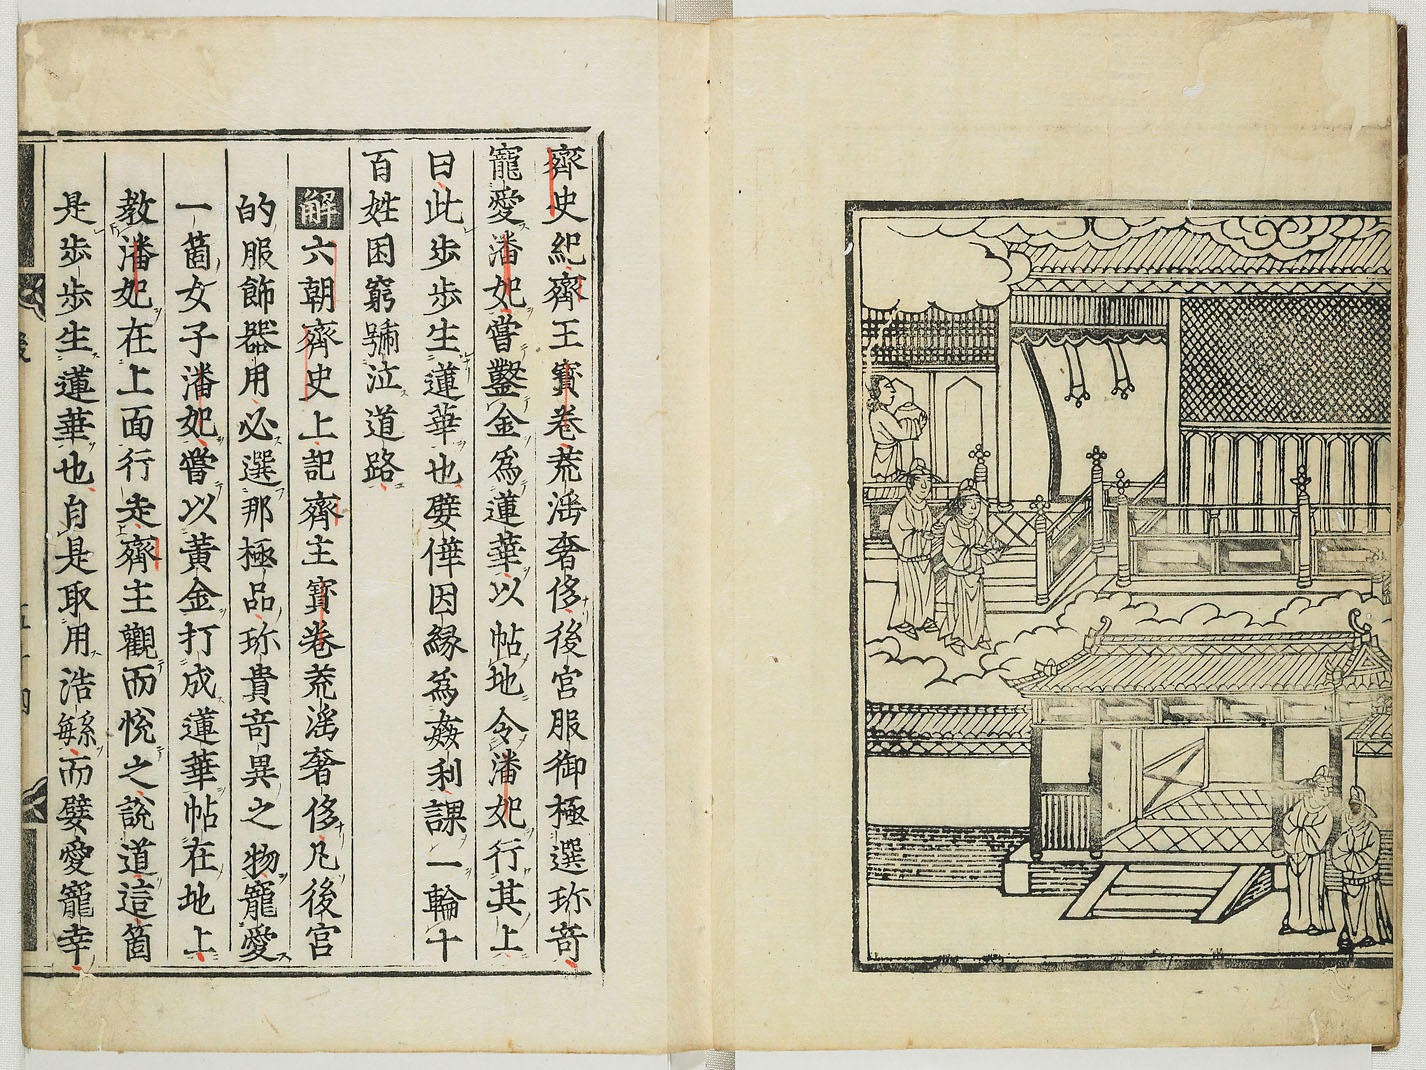 齊史紀齊王寳卷荒滛奢侈後宫服御極選珎竒
寵愛潘妃嘗鑿金爲蓮華以帖地令潘妃行其上
曰此步步生蓮華也嬖倖因縁爲姦利課一輸十
百姓困窮號泣道路
解六朝齊史上記齊主寳卷荒滛奢侈凡後宫
的服飾器用必選那極品珎貴竒異之物寵愛
一箇女子潘妃嘗以黄金打成蓮華帖在地上
教潘妃在上面行走齊主觀而悅之說道這箇
是步步生蓮華也自是取用浩繁而嬖愛寵幸